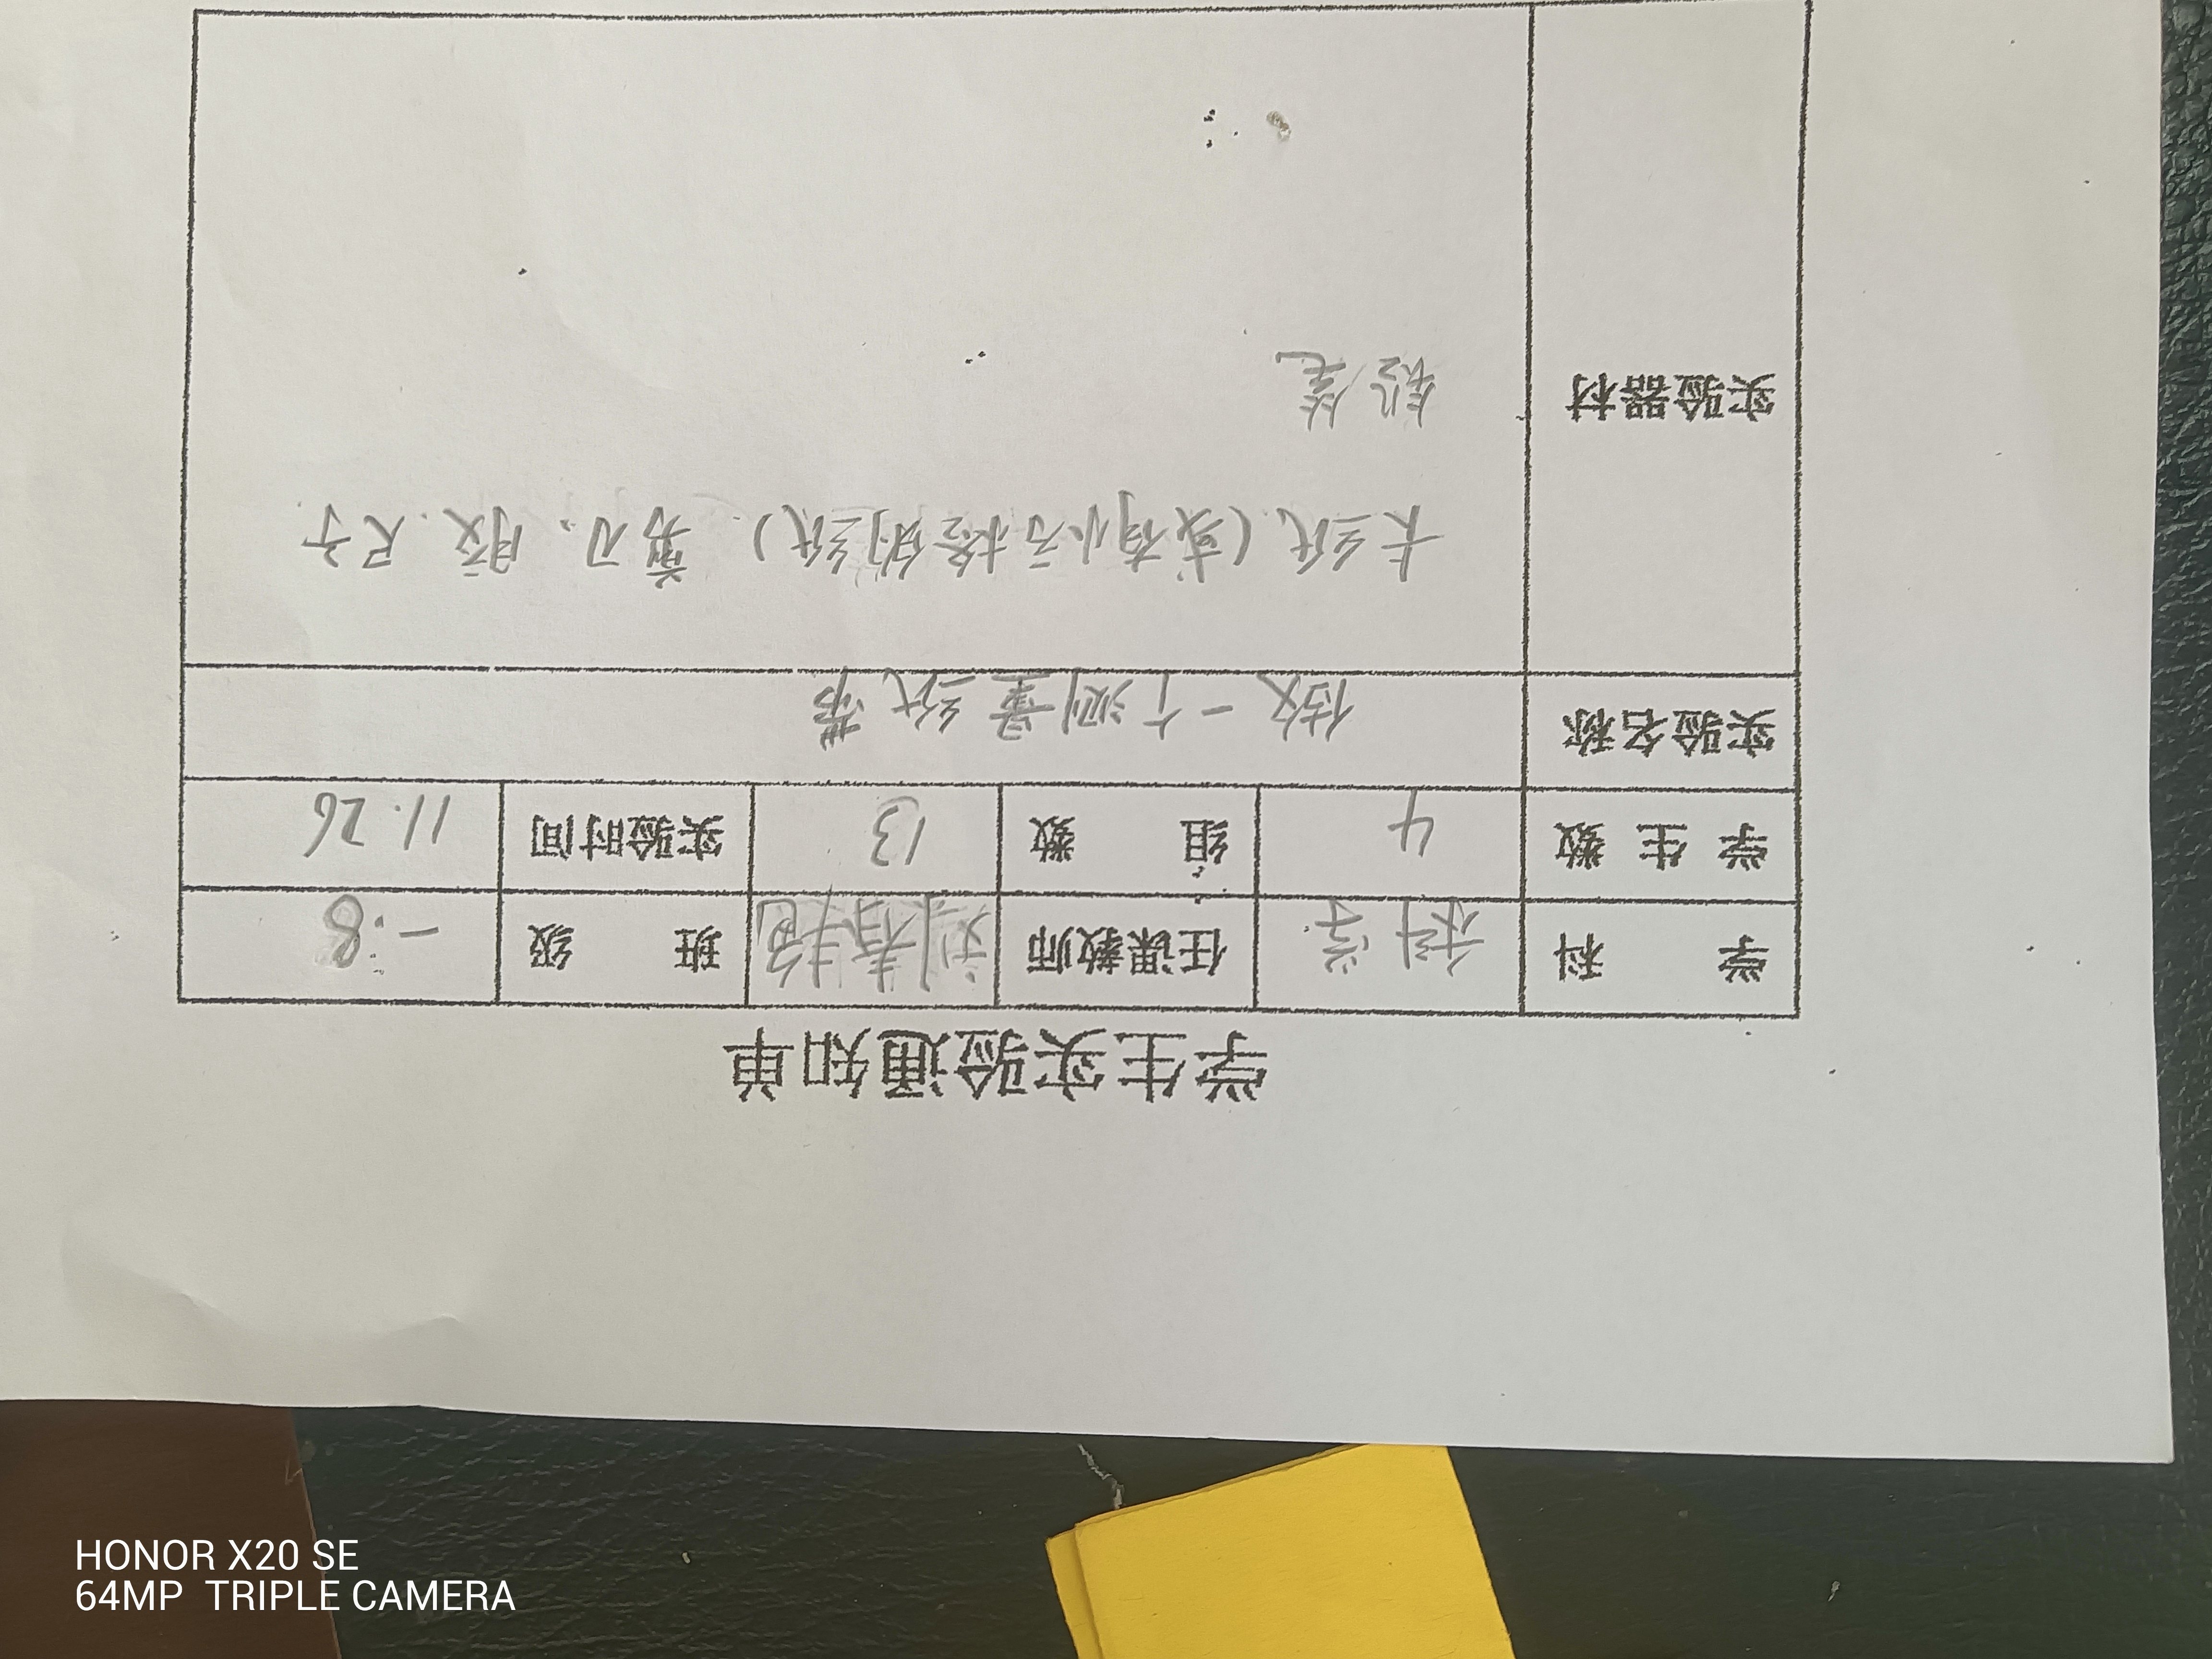 学生实验通知单
学 科 科学 任课教师 班 级 一.8
学生数 4 组 数 13 实验时间 11.26
实验名称 做一个测量纸带
实验器材 卡纸(或有小方格的纸)、剪刀、胶、尺子
铅笔
HONOR X20 SE
64MP TRIPLE CAMERA